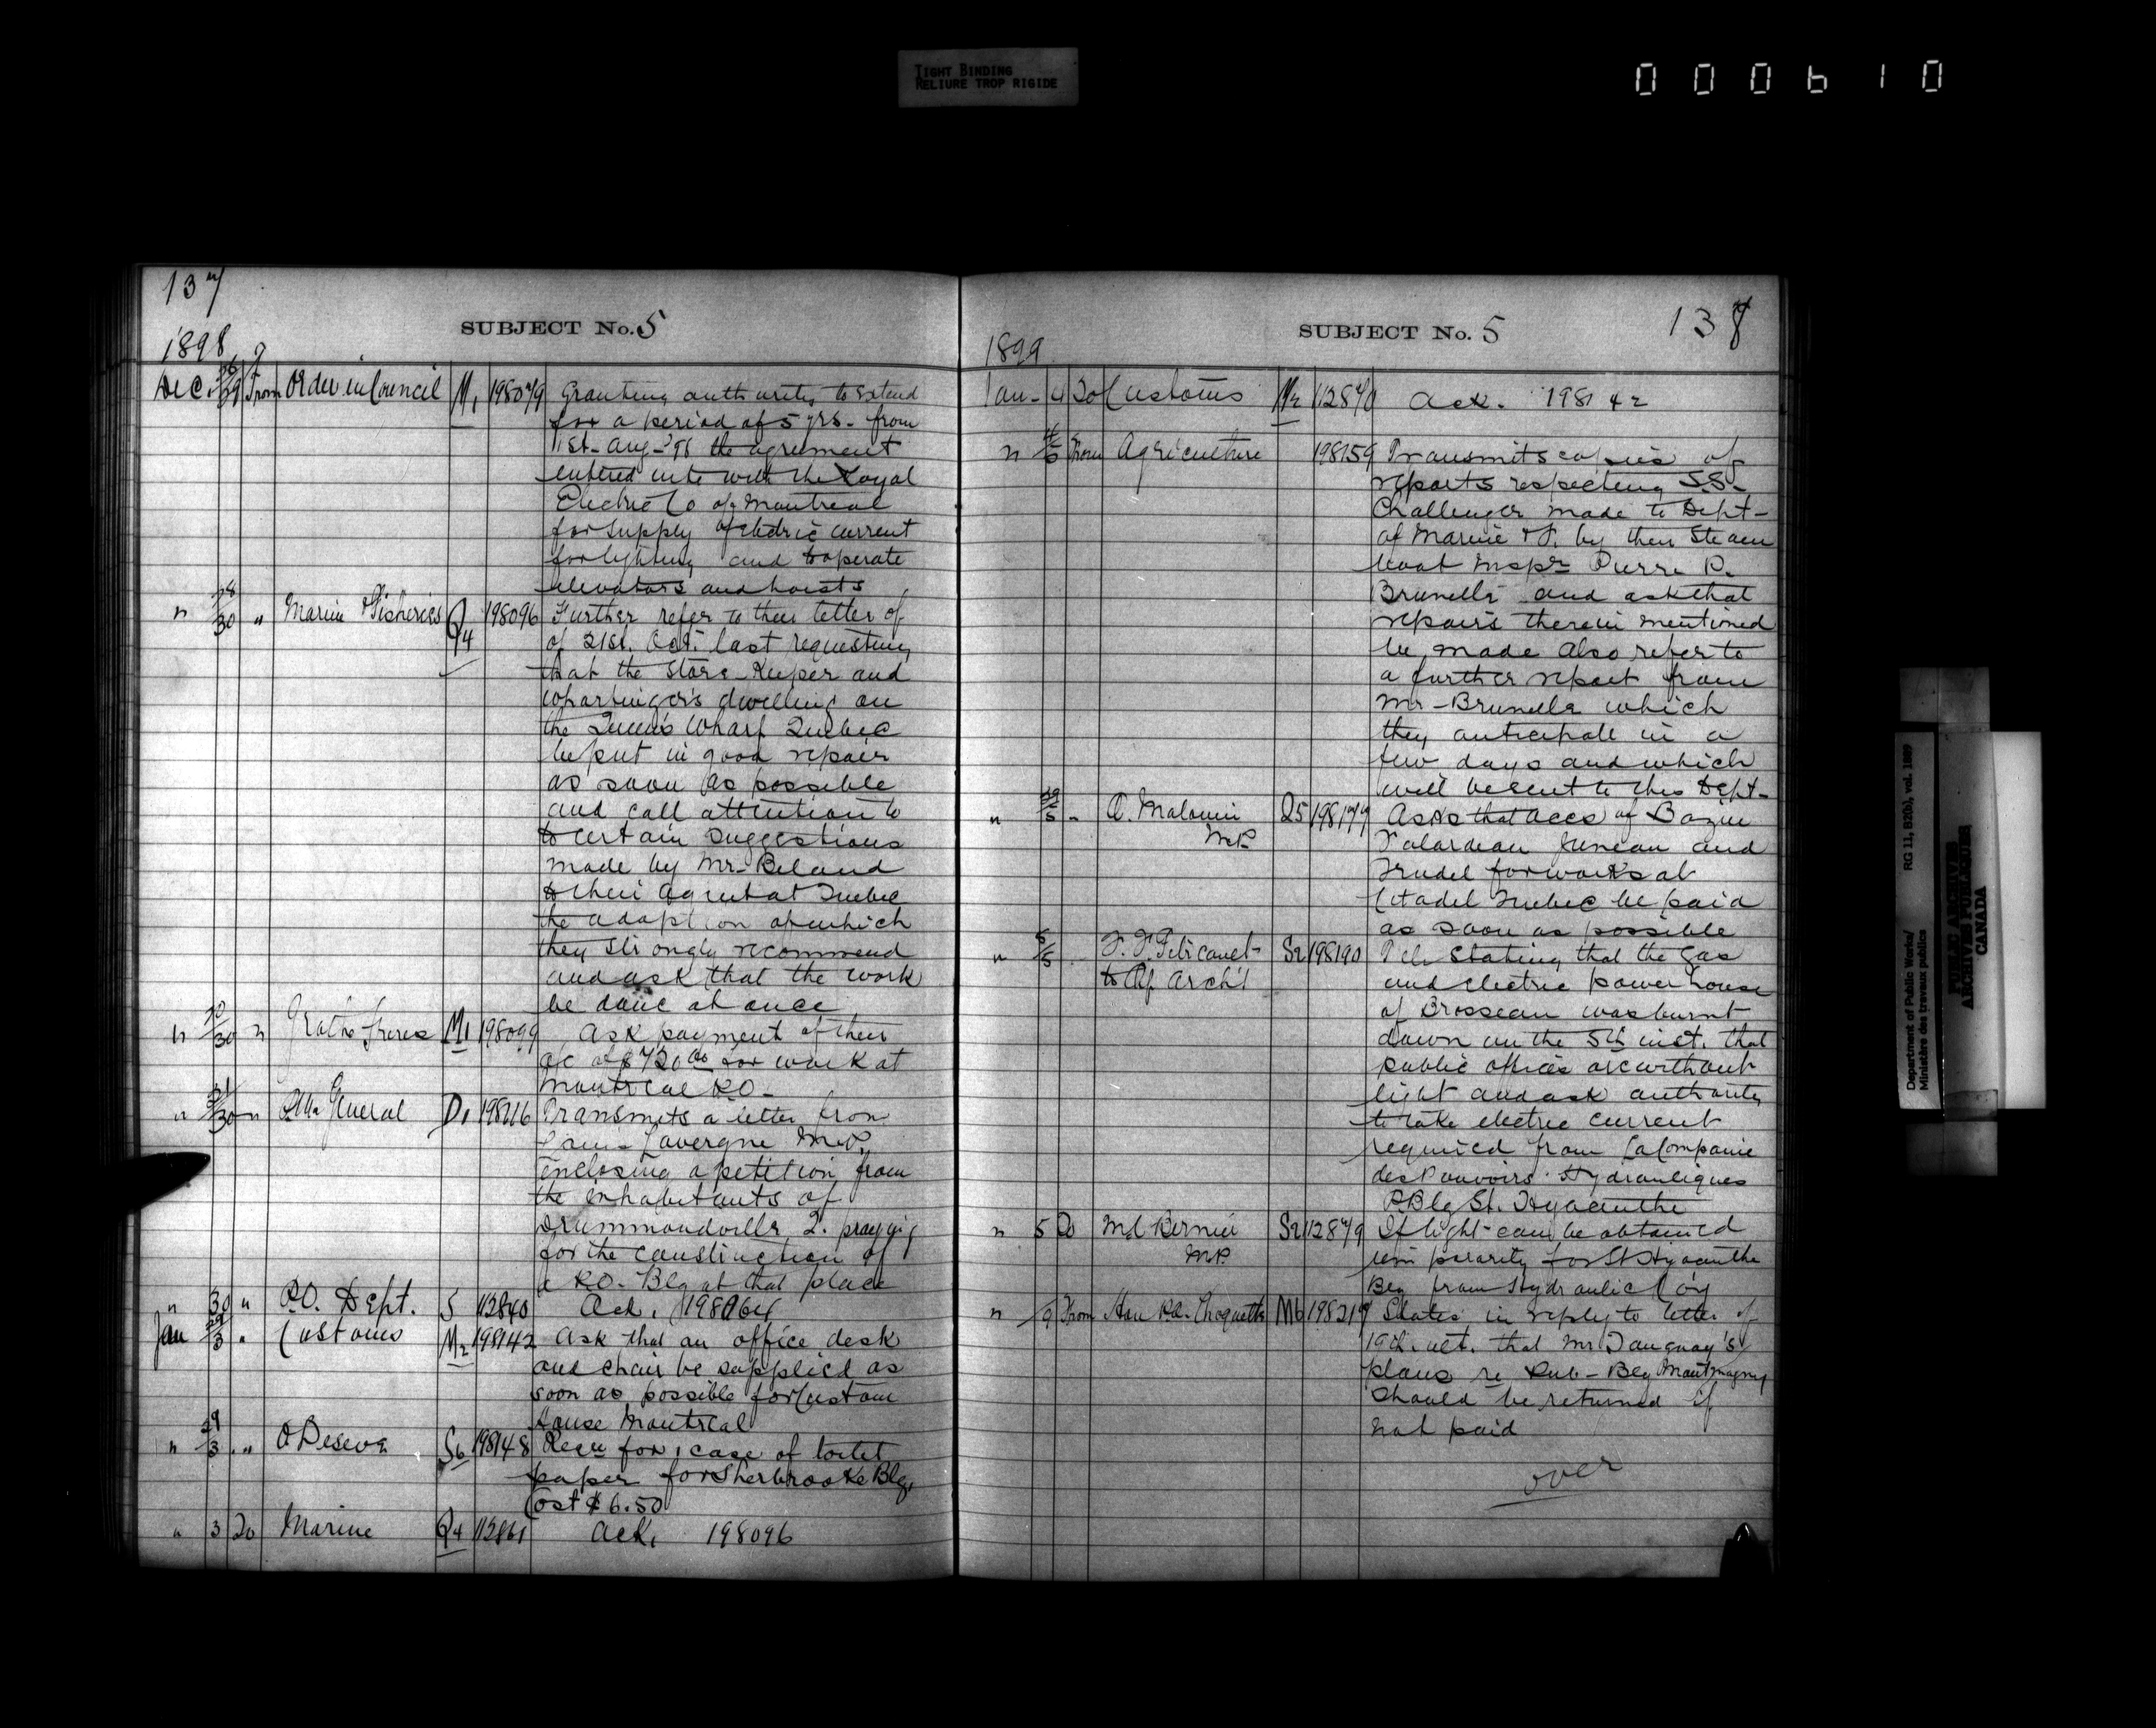 TIGHT BINDING
RELIURE TROP RIGIDE
000610
137
SUBJECT No. 5
1898/9
Dec. 29 From Order in Council M1 198079 Granting authority to extend
for a period of 5 yrs. from
1st Aug. '98 the agreement
entered into with the Royal
Electric Co of Montreal
for supply of electric current
for lighting and to operate
elevators and hoists
" 28/30 " Marine & Fisheries Q4 198096 Further refer to their letter of
of 21st. Oct. last requesting
that the Store-Keeper and
Wharfinger's dwelling on
the Queen's Wharf Quebec
be put in good repair
as soon as possible
and call attention to
to certain suggestions
made by Mr. Beland
to their Agent at Quebec
the adoption of which
they strongly recommend
and ask that the work
be done at once
" 30 " Freres M1 198099 Ask payment of their
a/c of $720.00 for work at
Montreal P.O.
" 31/30 " General D1 198116 Transmits a letter from
Lavergne M.P.
inclosing a petition from
the inhabitants of
Drummondville Q. praying
for the construction of
a P.O. Blg at that place
" 30 " P.O. Dept. S 112840 Ack. 198064
Jan 29/3 " Customs M2 198142 Ask that an office desk
and chair be supplied as
soon as possible for Custom
House Montreal
" 29/3 " S6 198148 Reqn for 1 case of toilet
paper for Sherbrooke Blg.
Cost $6.50
" 3 To Marine Q4 112861 Ack. 198096
138
SUBJECT No. 5
1899
Jan. 4 To Customs M2 112870 Ack. 198142
" 4/5 From Agriculture 198159 Transmits copies of
reports respecting S.S.
Challenger made to Dept.
of Marine & F. by their Steam
boat Inspr Pierre P.
Brunelle and ask that
repairs therein mentioned
be made Also refer to
a further report from
Mr. Brunelle which
they anticipate in a
few days and which
will be sent to this Dept.
" 5 " Malouin Q5 198179 Asks that accs of Bazin
Falardeau Juneau and
Trudel for works at
Citadel Quebec be paid
as soon as possible
" 5/5 S2 198190 Tel. Stating that the gas
to Arch't and electric power house
of Brosseau was burnt
down on the 5th inst. that
public offices are without
light and ask authority
to take electric current
required from La Companie
des Pouvoirs Hydrauliques
P. Blg St. Hyacinthe
" 5 To M.E. Bernier S2 112879 If light can be obtained
M.P. temporarily for St Hyacinthe
Blg from Hydraulic Coy
" 9 From Hon P.A. Choquette M6 198219 States in reply to letter of
19th. ult. that Mr Tanguay's
plans re Pub. Blg Montmagny
should be returned if
not paid
over
Department of Public Works/ RG 11, B2(b), vol. 1889
Ministère des travaux publics
PUBLIC ARCHIVES
ARCHIVES PUBLIQUES
CANADA